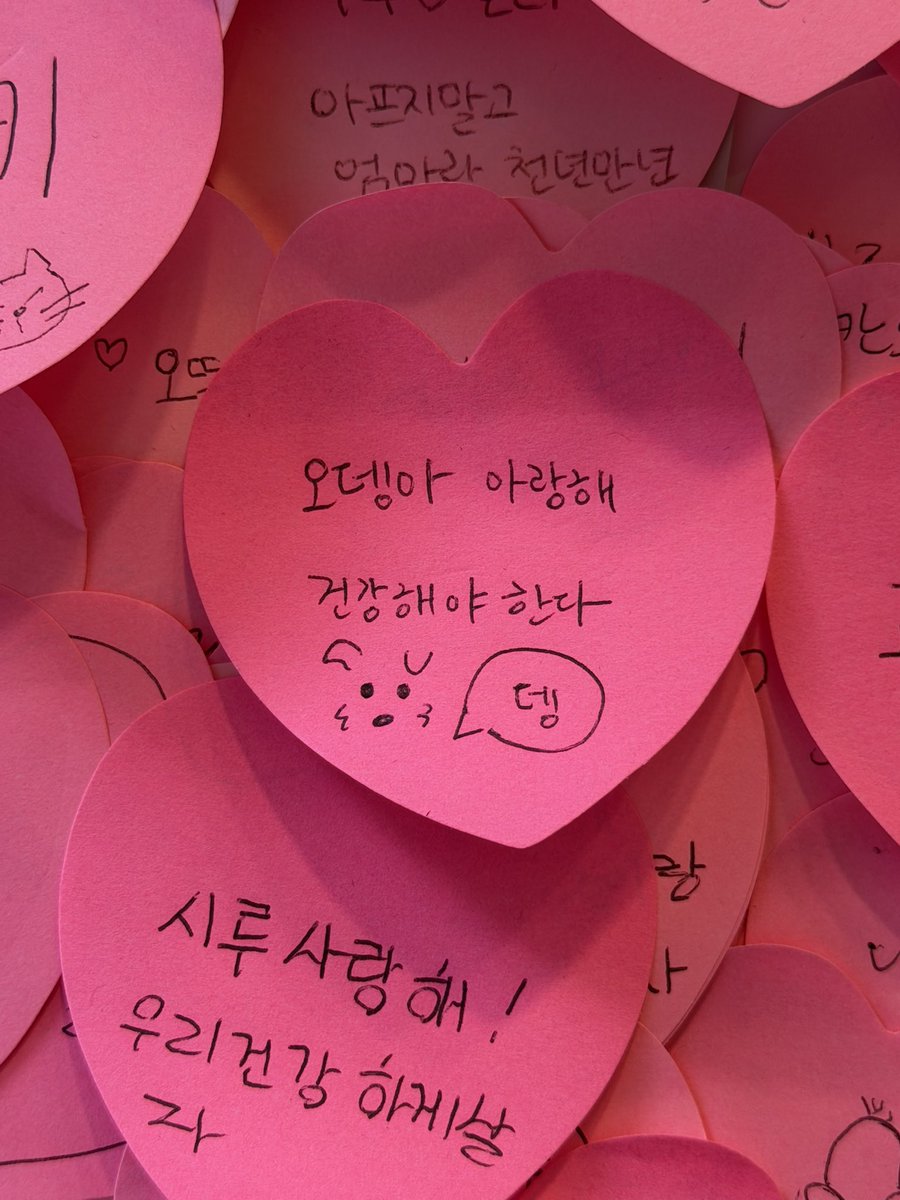 아프지말고
엄마랑 천년만년
키
♡ 오뜨
오뎅아 아랑해
건강해야 한다
뎅
랑
사
시루 사랑해!
우리건강하게살
자